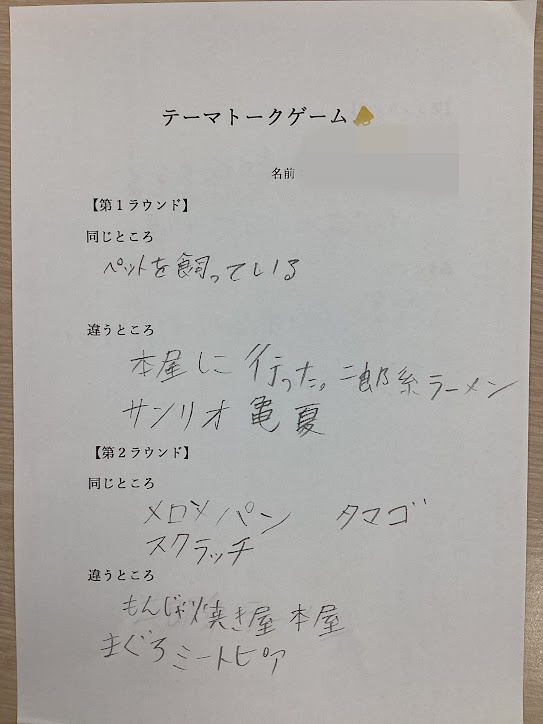 テーマトークゲーム
名前
【第１ラウンド】
同じところ
ペットを飼っている
違うところ
本屋に行った。二郎系ラーメン
サンリオ 亀 夏
【第２ラウンド】
同じところ
メロメパン タマゴ
スクラッチ
違うところ
もんじゃ焼き屋 本屋
まぐろ ミートピア